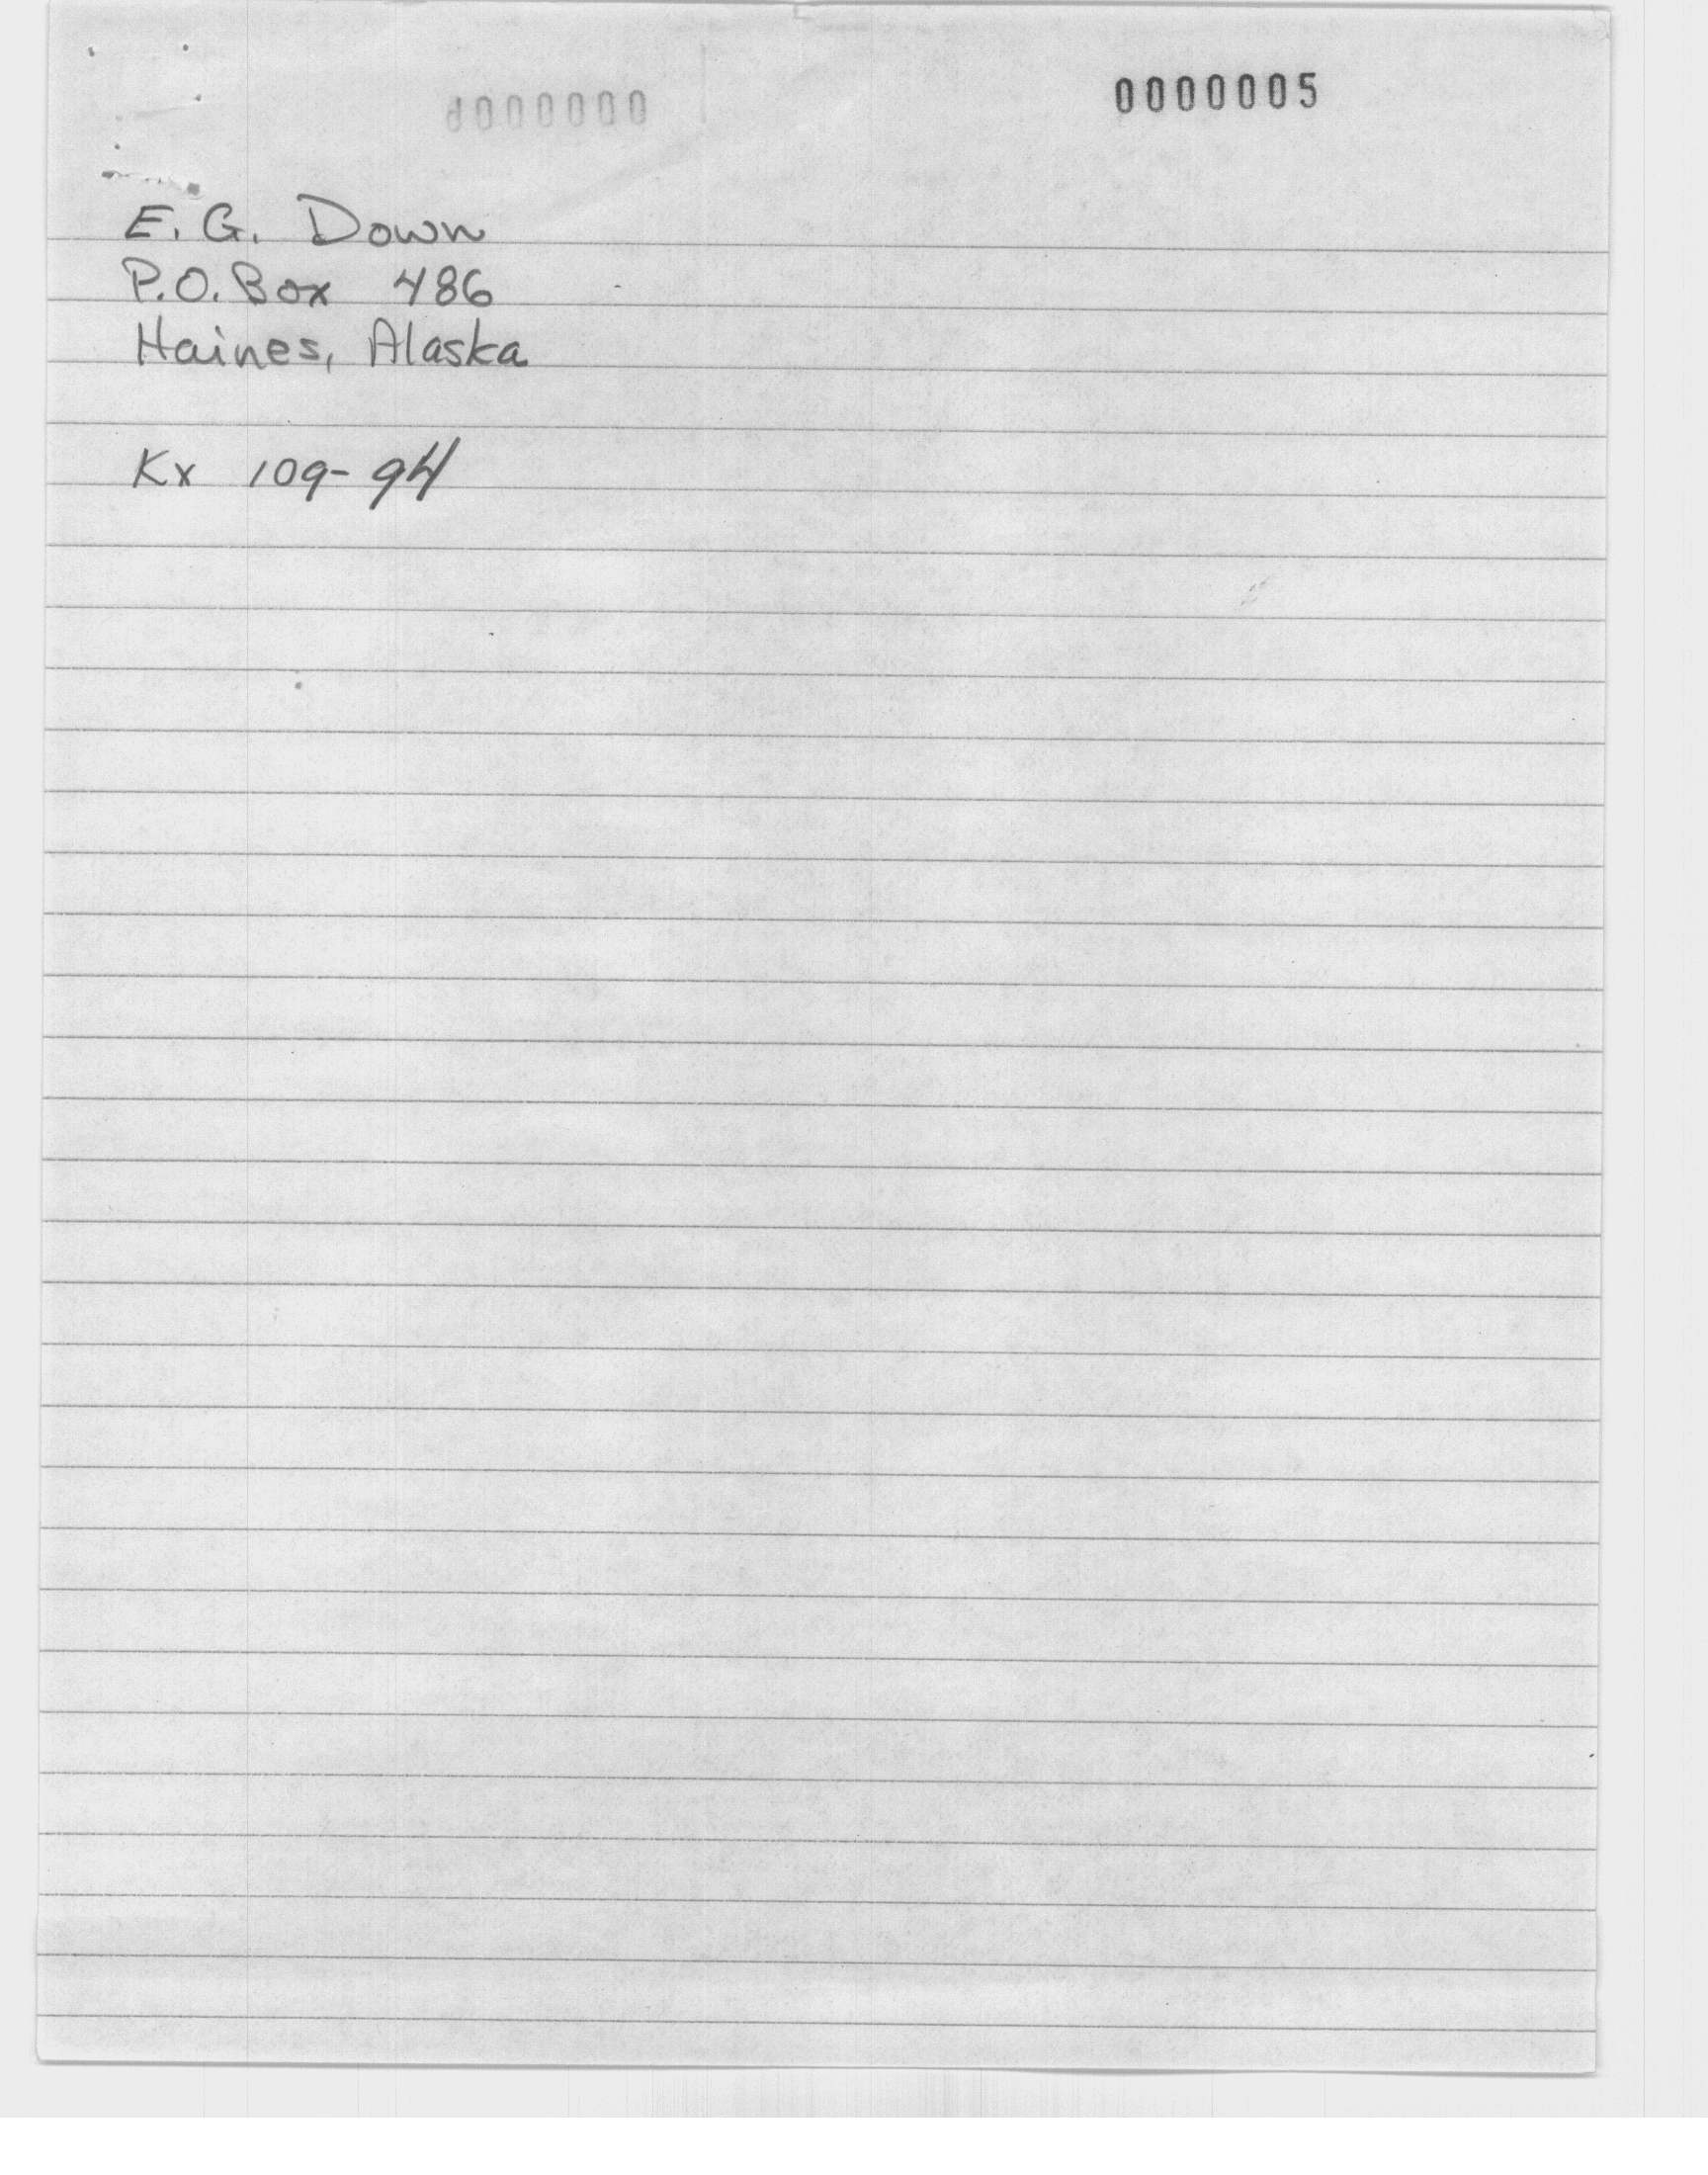 0000005
E. G. Down
P.O. Box 486
Haines, Alaska
Kx 109-94